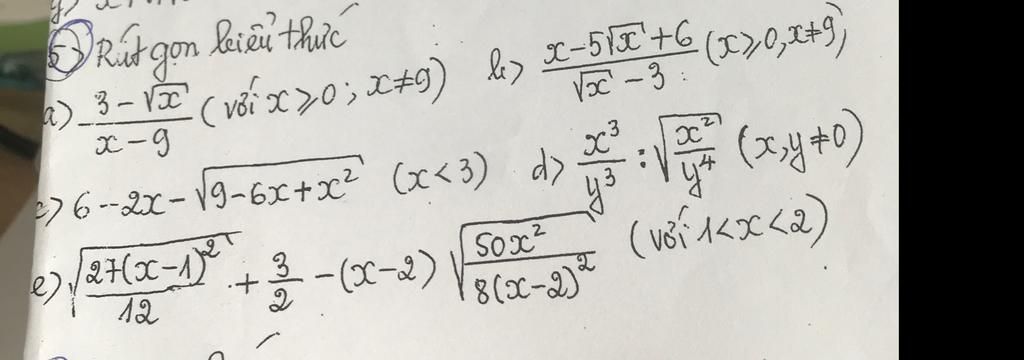 5) Rút gọn biểu thức
a) \frac{3-\sqrt{x}}{x-9} (với x ⩾ 0; x ≠ 9) b) \frac{x-5\sqrt{x}+6}{\sqrt{x}-3} (x ⩾ 0, x ≠ 9)
c) 6-2x-\sqrt{9-6x+x^2} (x < 3) d) \frac{x^3}{y^3} : \sqrt{\frac{x^2}{y^4}} (x, y ≠ 0)
e) \sqrt{\frac{27(x-1)^2}{12}} + \frac{3}{2} - (x-2) \sqrt{\frac{50x^2}{8(x-2)^2}} (với 1 < x < 2)